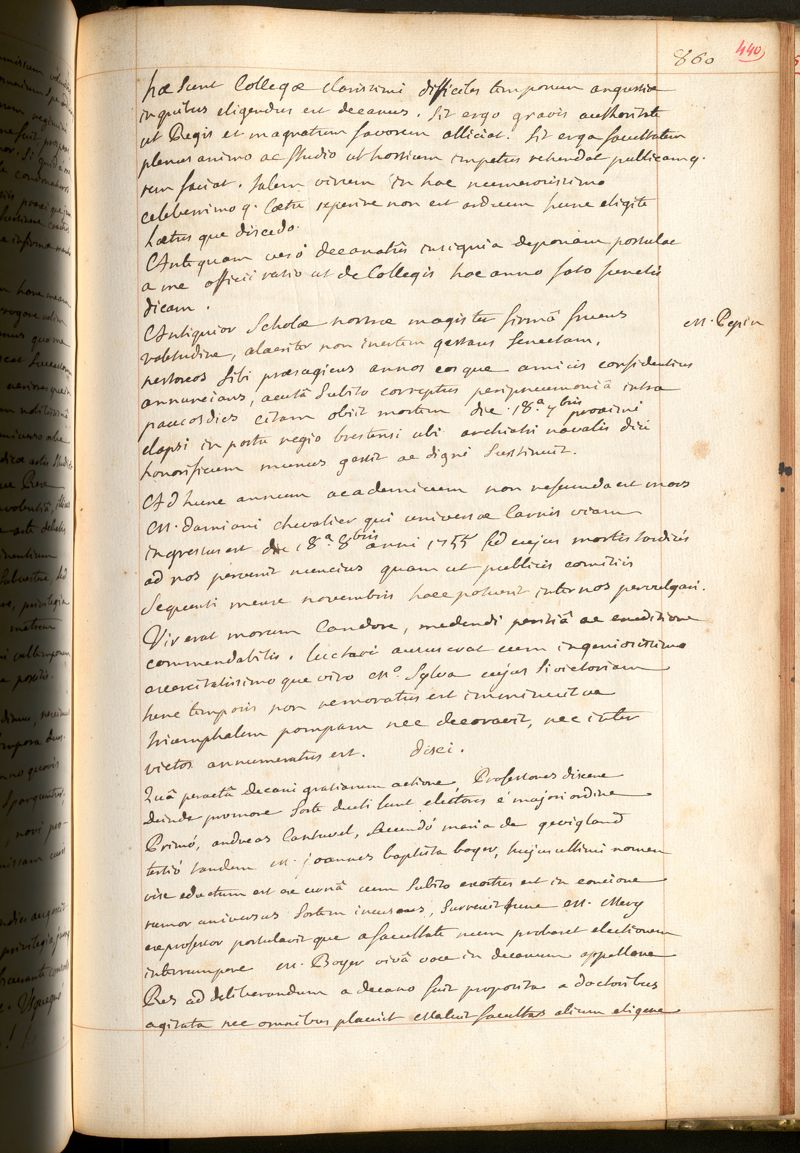 860
440
hæ sunt Collegæ clarissimi difficiles temporum angustiæ
in quibus eligendus est decanus. Sit ergo gravis authoritate
ut Regis et magnatum favorem alliciat. Sit erga facultatem
plenus animo ac studio ut hostium impetus rehendat publicamq.
rem faciat. talem virum in hac numerosissimo
celeberrimoq. Cœtu reperire non est arduum hunc eligite
Lætus que discedo.
Antequam verò decanatûs insignia deponam postulat
a me officii ratio ut de Collegis hoc anno fato functis
dicam.
Antiquior Scholæ nostræ magister firmâ fruens
valetudine, alacriter non inertem gestans senectam,
nestoreos sibi præsagiens annos eosque amicis confidentius
annuncians, acutâ subito correptus peripneumoniâ intra
paucos dies citam obiit mortem die 18.a 7bris proximi
elapsi in portu regio brestensi ubi archiatri navalis dici
honorificum munus gessit ac digni sustinuit.
M. Pepin
Ad hunc annum academicum non refundenda est mors
M. damiani chevalier qui universæ Carnis viam
ingressus est die 18.a 8bris anni 1755 sed cujus mortis tardius
ad nos pervenit nuncius quam ut publicis comitiis
sequenti mense novembris hæc potuerit inter nos pervulgari.
Vir erat morum Candore, medendi peritiâ ac eruditione
commendabilis. luctari ausus erat cum ingeniosissimo
exercitatissimoque viro Mo. Sylva cujus si victoriam
hunc temporis non remoratus est imminuit ve
triumphalem pompam nec decoravit, nec inter
victos annumeratus est. dixi.
Quâ peractâ Decani gratiarum actione Professores discere
Deinde promore sorte ducti sunt electores è majori ordine
Primò, andreas Cantwel, secundò maria de gevigland
tertiò tandem M. joannes baptista boyer, hujus ultimi nomen
vix eductum est ac urnâ cum subito exortus est in concione
rumor universus sortem incusans, surrexit tunc M. Mery
exprofessor postulavitque a facultate num probaret electionem
interrumpere M. Boyer vivâ voce in decanum appellare
Res ad deliberandum a decano fuit proposita a doctoribus
agitata nec omnibus placuit Maluit facultas alium eligere